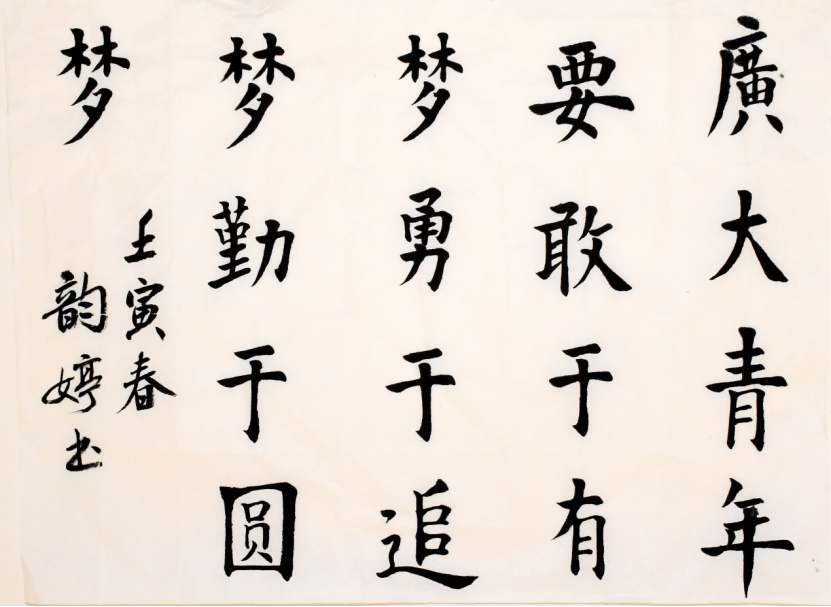 廣大青年
要敢于有
梦勇于追
梦勤于圆
梦
壬寅春
韵婷书